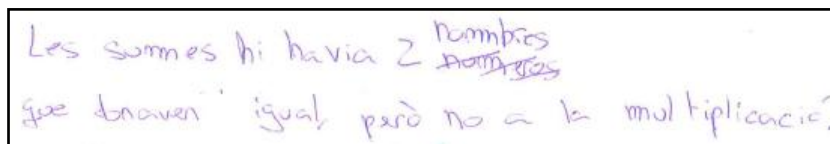 Les summes hi havia 2 nommbres
que donaven igual, però no a la multiplicació.